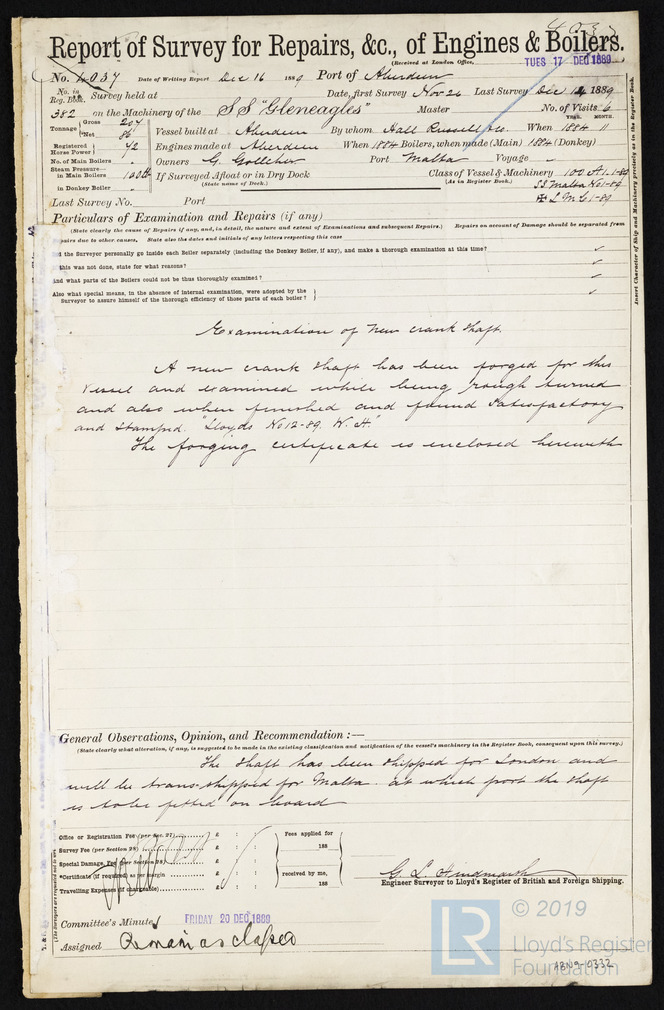 4037
Report of Survey for Repairs, &c., of Engines & Boilers.
(Received at London Office, TUES 17 DEC 1889
No. 4037 Date of Writing Report Dec 16 1889 Port of Aberdeen
No. in Reg. Book. Survey held at Date, first Survey Nov 26 Last Survey Dec 14 1889
382 on the Machinery of the S S "Gleneagles" Master No. of Visits 6
Tonnage Gross 207 Net 86 Vessel built at Aberdeen By whom Hall Russell & Co. When 1884 YEAR. 11 MONTH
Registered Horse Power 42 Engines made at Aberdeen When 1884 Boilers, when made (Main) 1884 (Donkey)
No. of Main Boilers Owners G. Gollcher Port Malta Voyage
Steam Pressure in Main Boilers 120 lb If Surveyed Afloat or in Dry Dock Class of Vessel & Machinery 100 A1. 1-89
in Donkey Boiler (State name of Dock.) (As in Register Book.) SS Malta No1-89
Last Survey No. Port ✠ L M C 1-89
Particulars of Examination and Repairs (if any)
(State clearly the cause of Repairs if any, and, in detail, the nature and extent of Examinations and subsequent Repairs.) Repairs on account of Damage should be separated from
pairs due to other causes, State also the dates and initials of any letters respecting this case
d the Surveyor personally go inside each Boiler separately (including the Donkey Boiler, if any), and make a thorough examination at this time? ✓
this was not done, state for what reasons? ✓
and what parts of the Boilers could not be thus thoroughly examined? ✓
Also what special means, in the absence of internal examination, were adopted by the
Surveyor to assure himself of the thorough efficiency of those parts of each boiler? ✓
Insert Character of Ship and Machinery precisely as in the Register Book.
Examination of New crank shaft.
A new crank shaft has been forged for this
vessel and examined while being rough turned
and also when finished and found satisfactory
and stamped. "Lloyds No 12-89. W. H."
The forging certificate is enclosed herewith
General Observations, Opinion, and Recommendation :—
(State clearly what alteration, if any, is suggested to be made in the existing classification and notification of the vessel's machinery in the Register Book, consequent upon this survey.)
The shaft has been shipped for London and
will be trans-shipped for Malta at which port the shaft
is to be fitted on board
Office or Registration Fee (per Sec. 27) £ : : Fees applied for
Survey Fee (per Section 28) £ : : 188
Special Damage Fee (per Section 28) £ : :
*Certificate (if required) as per margin £ : : received by me,
Travelling Expenses (if chargeable) £ : : 188
G. L. Hindmarsh
Engineer Surveyor to Lloyd's Register of British and Foreign Shipping.
Committee's Minute FRIDAY 20 DEC 1889
Assigned Remain as classed
LR © 2019
Lloyd's Register
Foundation
ABN9-0332